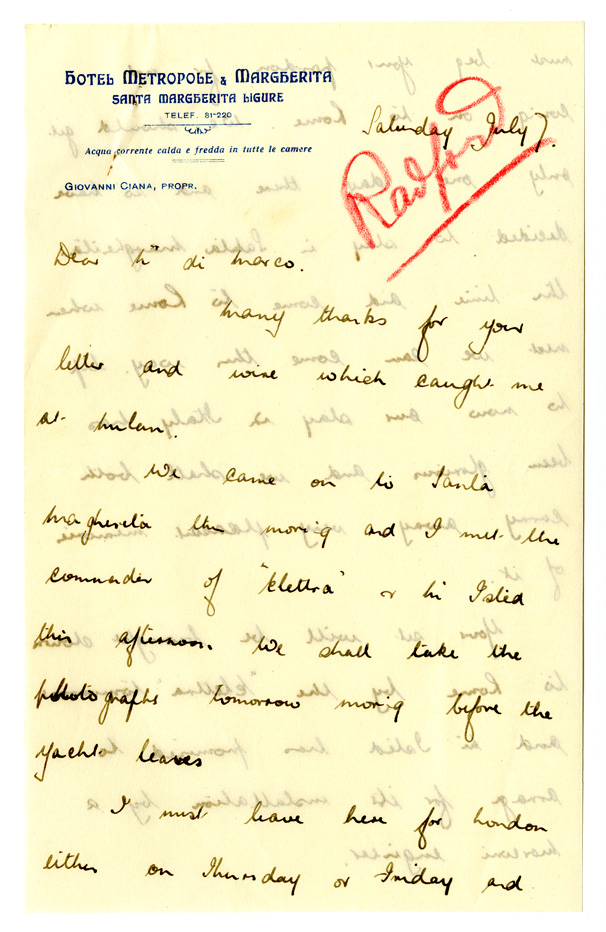 HOTEL METROPOLE & MARGHERITA
SANTA MARGHERITA LIGURE
TELEF. 81-220
Acqua corrente calda e fredda in tutte le camere
GIOVANNI CIANA, PROPR.
Saturday July 7.
Radford
Dear Mr di Marco.
Many thanks for your
letter and wire which caught me
at Milan.
We came on to Santa
Margherita this morning and I met the
commander of "Elettra" & Mr Isted
this afternoon. We shall take the
photographs tomorrow morning before the
yacht leaves
I must leave here for London
either on Thursday or Friday and